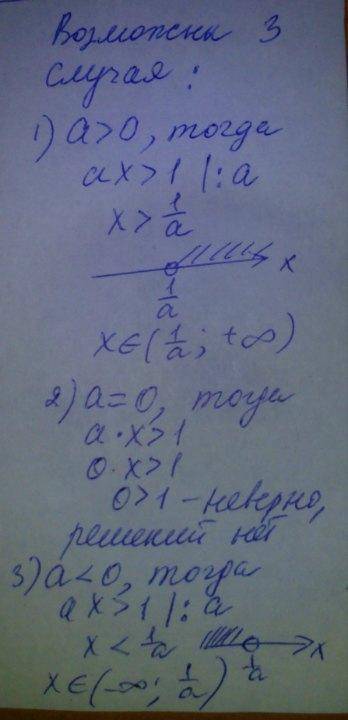 Возможны 3
случая:
1) a>0, тогда
ax>1 |:a
x>1/a
x
1/a
x∈(1/a; +∞)
2) a=0, тогда
a·x>1
0·x>1
0>1 – неверно,
решений нет
3) a<0, тогда
ax>1 |:a
x<1/a x
1/a
x∈(-∞; 1/a)